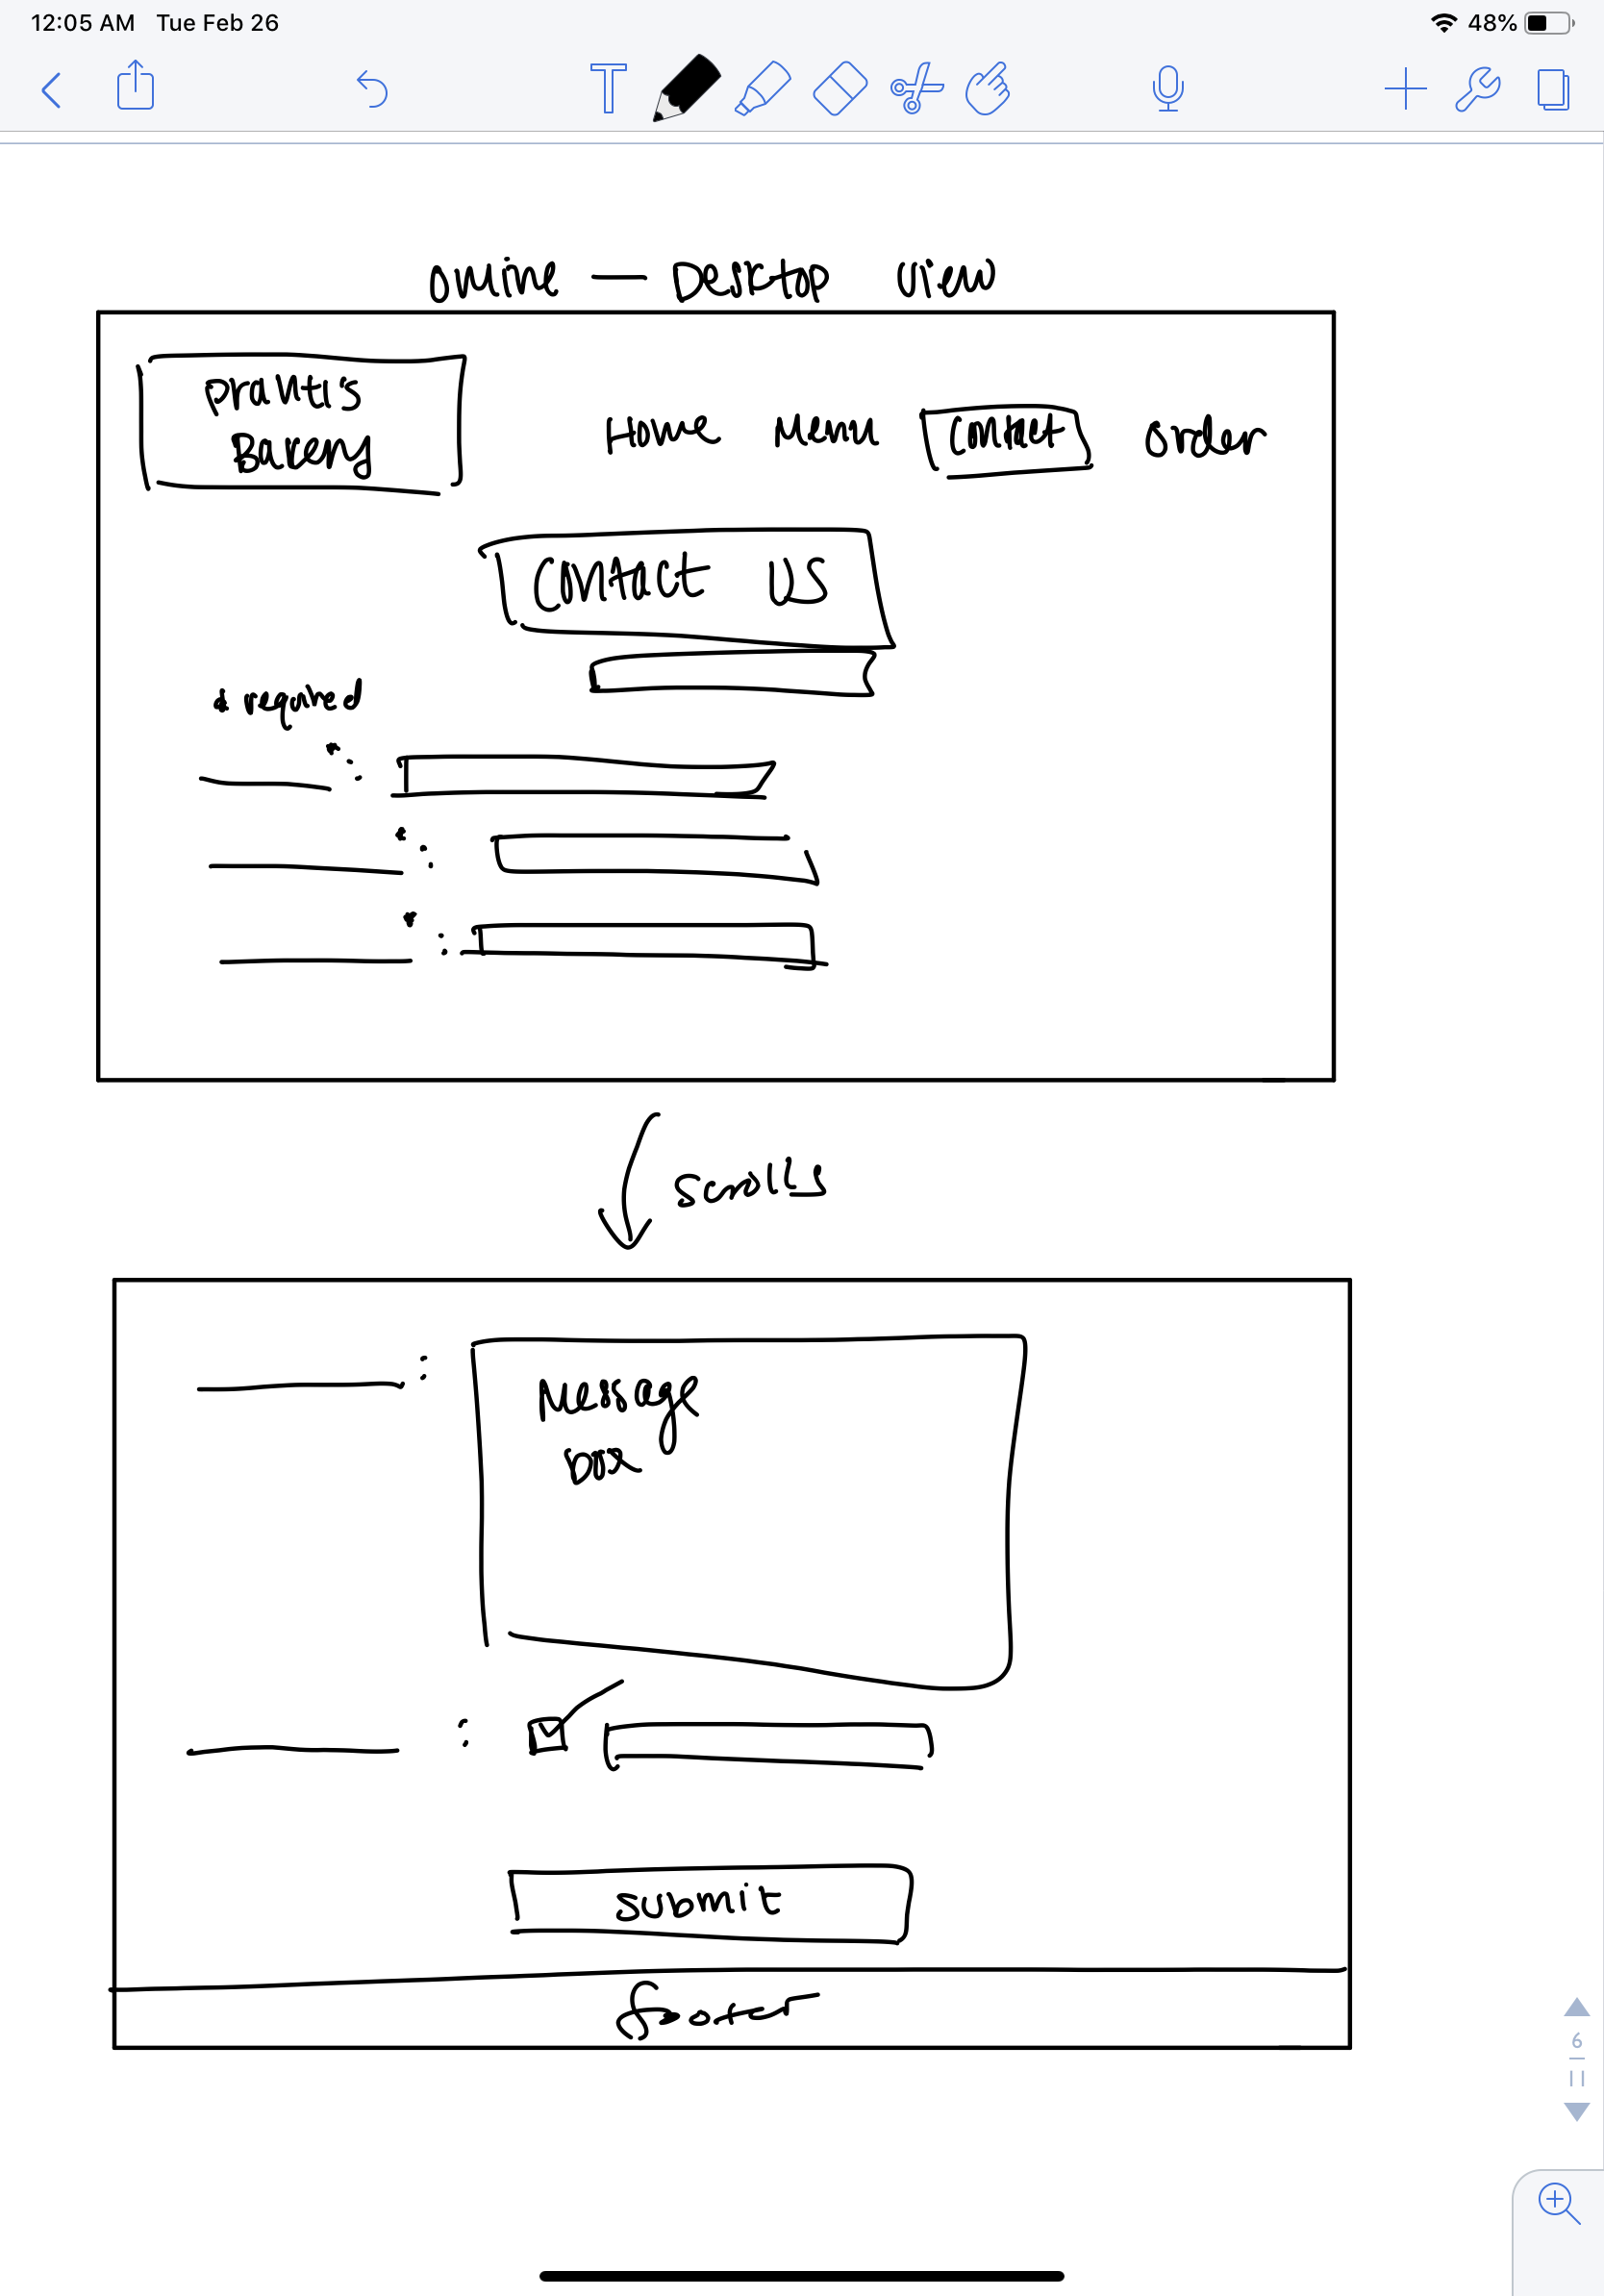 12:05 AM Tue Feb 26
48%
Online — Desktop View
Bakery
Home Menu Contact Order
Contact US
* required
*:
*:
*:
scrolls
:
Message
box
:
submit
footer
6
11